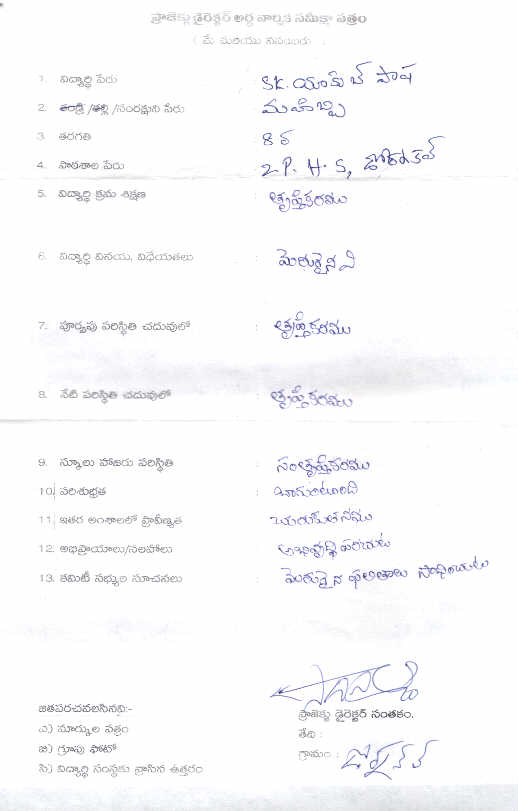 ప్రాజెక్టు డైరెక్టర్ అర్ధ వార్షిక సమీక్షా పత్రం
( మే మరియు నవంబరు )
1. విద్యార్థి పేరు : SK. యాకుబ్ పాష
2. తండ్రి /తల్లి /సంరక్షుని పేరు : మహబ్బి
3. తరగతి : 8వ
4. పాఠశాల పేరు : Z.P.H.S,
5. విద్యార్థి క్రమ శిక్షణ : తృప్తికరము
6. విద్యార్థి వినయ, విధేయతలు : మెరుగైనవి
7. పూర్వపు పరిస్థితి చదువులో : తృప్తికరము
8. నేటి పరిస్థితి చదువులో : తృప్తికరము
9. స్కూలు హాజరు పరిస్థితి : సంతృప్తికరము
10. పరిశుభ్రత : బాగుంటుంది
11. ఇతర అంశాలలో ప్రావీణ్యత :
12. అభిప్రాయాలు/సలహాలు : అభివృద్ధి పరచుట
13. కమిటీ సభ్యుల సూచనలు : మెరుగైన ఫలితాలు సాధించుట
జతపరచవలసినవి:-
ఎ) మార్కుల పత్రం
బి) గ్రూపు ఫోటో
సి) విద్యార్థి సంస్థకు వ్రాసిన ఉత్తరం
ప్రాజెక్టు డైరెక్టర్ సంతకం.
తేది :
గ్రామం :